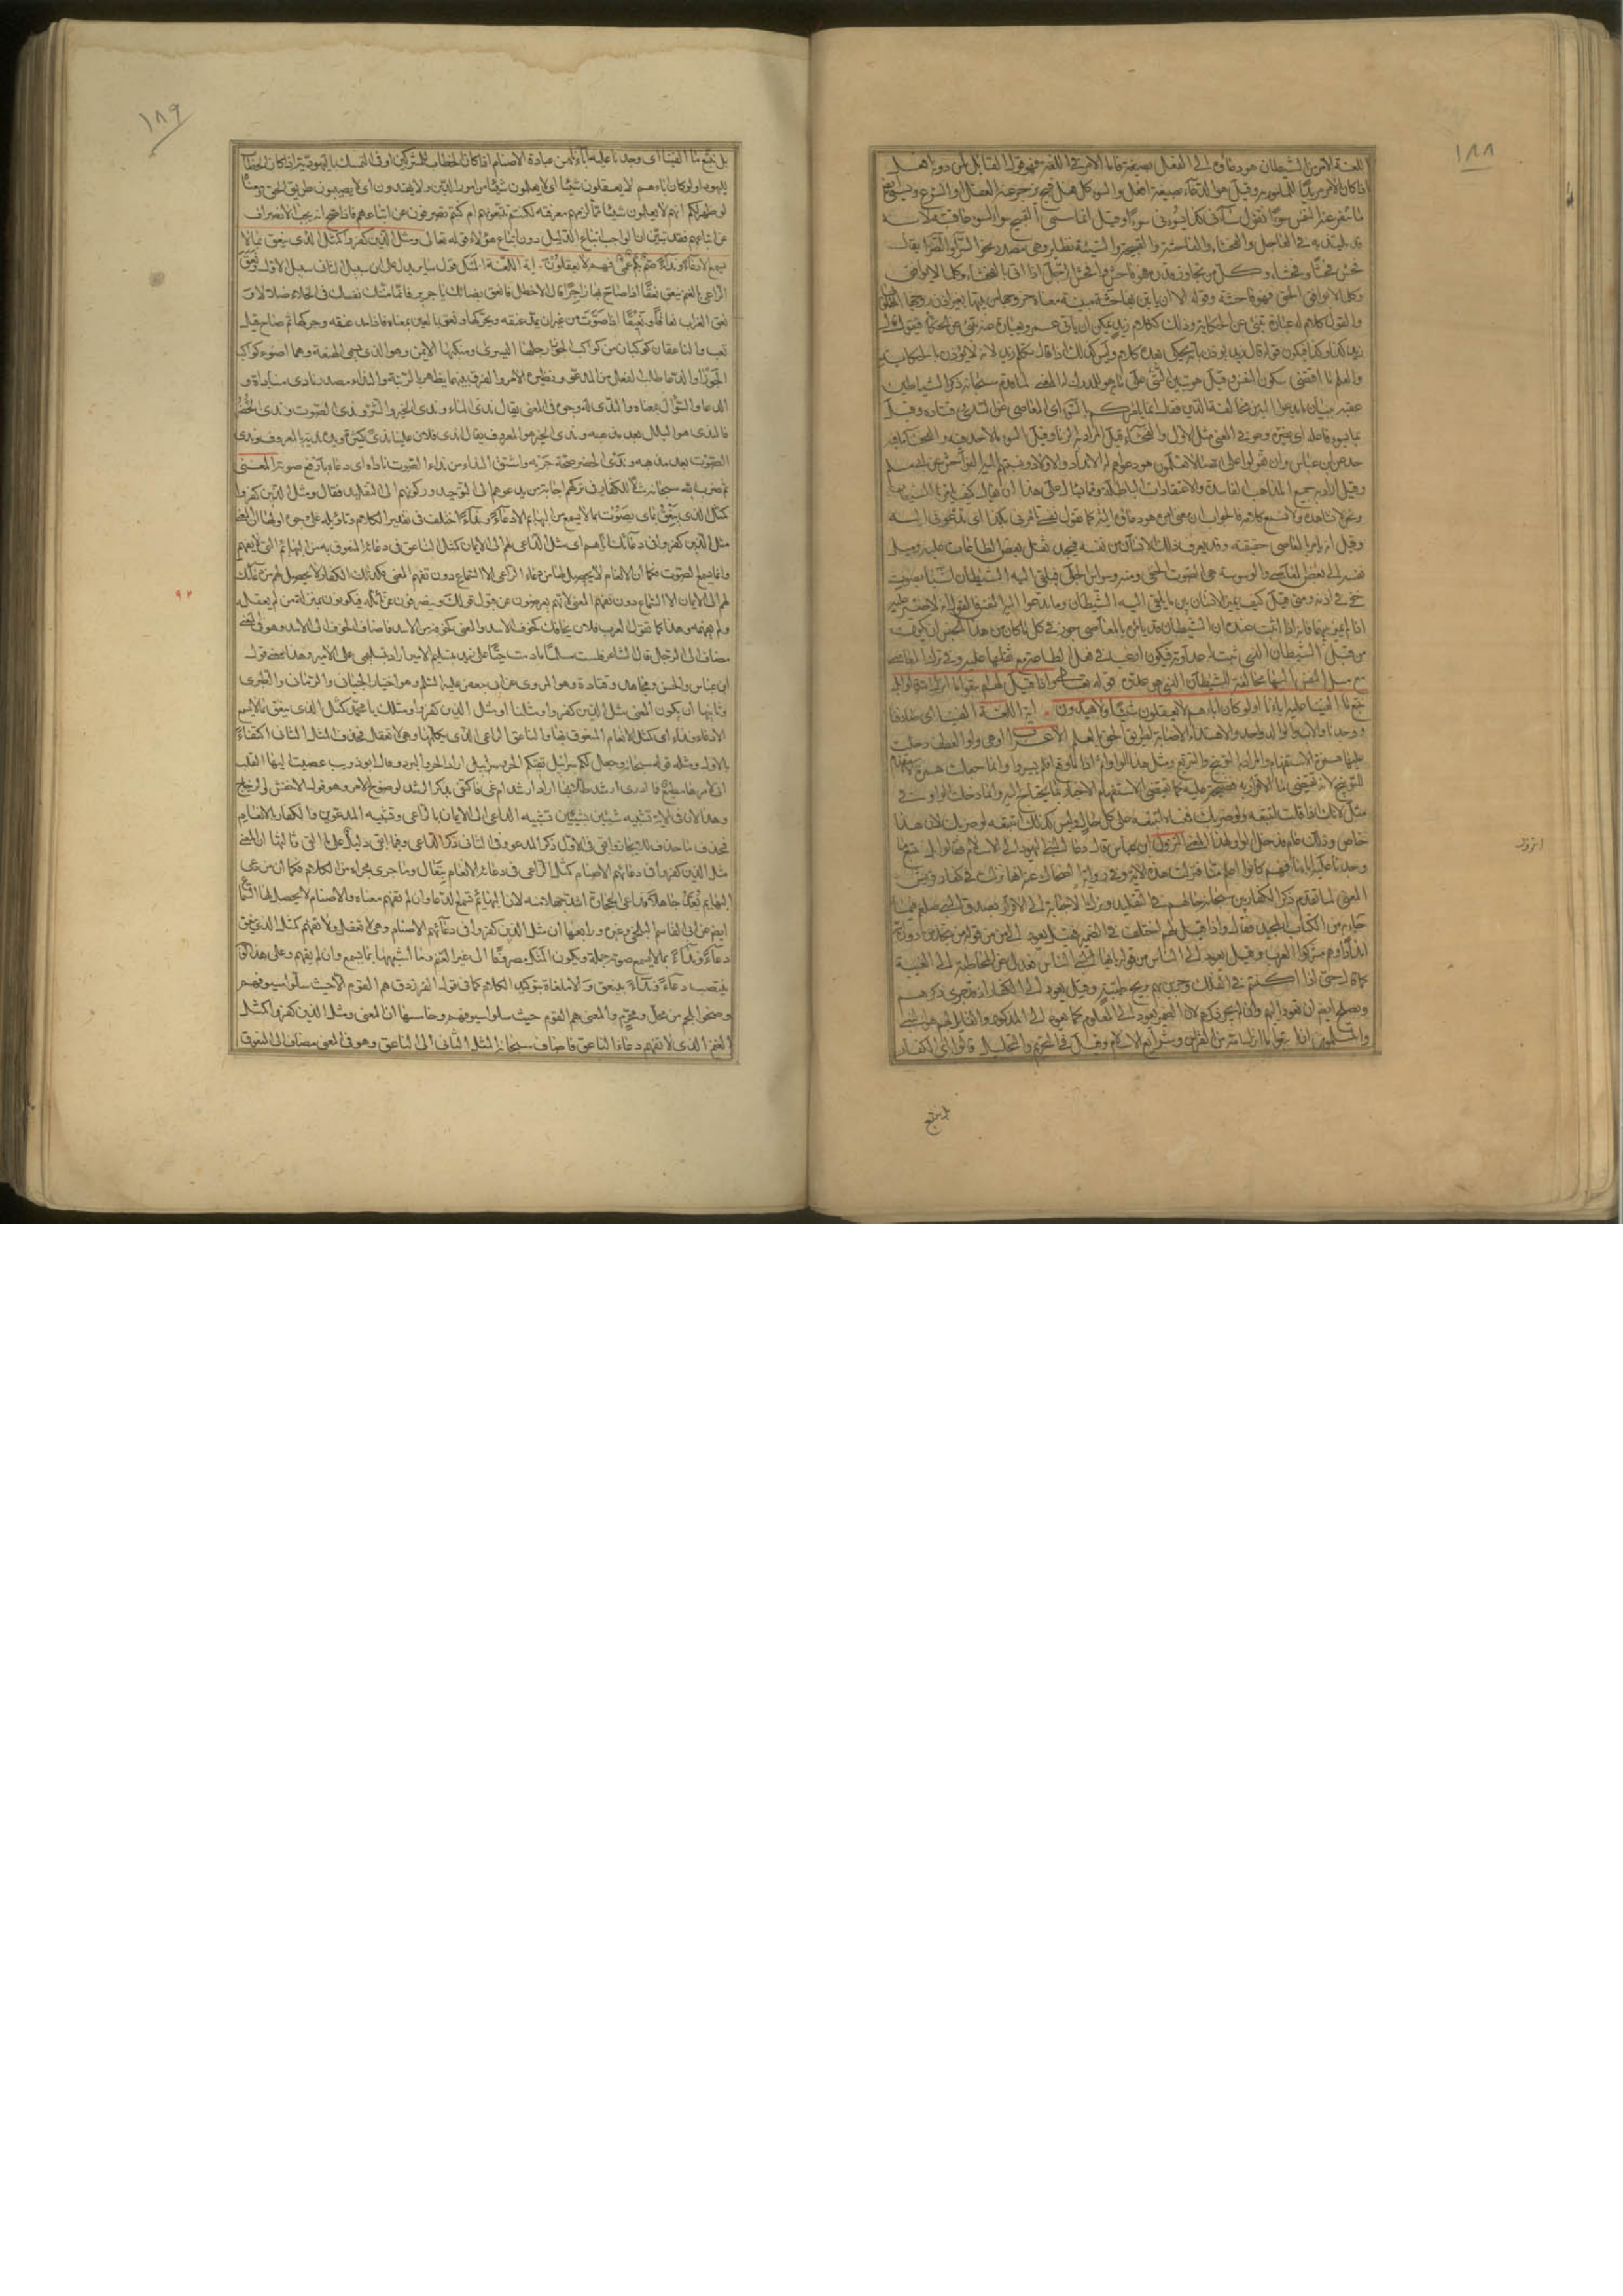 ١٨٨
اللغة الامر من الشيطان هو دعاؤه الى الفعل بصيغة فاما الامر في اللغة فهو قول القائل لمن دونه افعل
اذا كان الامر مريدًا للمامور به وقيل هو الدعاء بصيغة افعل والسوء كل فعل قبيح يزجر عنه العقل او الشرع ويسمى ايضا
ما تنفر عنه النفس سوءًا تقول ساءنى كذا يسوءنى سوءًا وقيل انما سمى القبيح سوءا لسوء عاقبته لانه
يلتذ به في العاجل والفحشاء والفاحشة والقبيحة والسيئة نظائر وهي مصدر نحو السرّاء والضرّاء يقال
فحش فحشًا وفحشاء وكل من تجاوز قدره فهو فاحش وافحش الرجل اذا اتى بالفحشاء وكل ما لا يوافق
الحق فهو فاحشة وقوله الا ان ياتين بفاحشة مبينة معناه خروجها من بيتها بغير اذن زوجها المطلق
والقول كلام له عبارة تنبئ عن الحكاية وذلك ككلام زيد يمكن ان ياتي عمرو بعبارة عنه تنبئ عن الحكاية فيقول قال
زيد كذا وكذا فيكون قوله قال زيد يوذن بانه يحكى بعده كلامه وليس كذلك اذا قال تكلم زيد لانه لا يوذن بالحكاية
والعلم ما اقتضى سكون النفس وقيل هو تبين الشيء على ما هو به للمدرك له المعنى لما قدم سبحانه ذكر الشياطين
عقبه ببيان ما يدعو اليه من مخالفة الدين فقال انما يامركم بالسوء اى المعاصى عن السدى وقتادة وقيل
بما يسوء فاعله اى يضره وهو في المعنى مثل الاول والفحشاء قيل المراد به الزنا وقيل السوء ما لا حد فيه والفحشاء ما فيه
حد عن ابن عباس وان تقولوا على الله ما لا تعلمون هو دعواهم له الانداد والاولاد ونسبتهم اليه الفواحش عن ابى مسلم
وقيل اراد به جميع المذاهب الفاسدة والاعتقادات الباطلة ومما يسال على هذا ان يقال كيف يامرنا الشيطان
ونحن لا نشاهده ولا نسمع كلامه فالجواب ان معنى امره هو دعاؤه اليه كما تقول نفسى تامرنى بكذا اى تدعونى اليه
وقيل انه يامر بالمعاصى حقيقة وقد يعرف ذلك الانسان من نفسه فيجد ثقل بعض الطاعات عليه وميل
نفسه الى بعض المعاصى والوسوسة هى الصوت الخفى ومنه وسواس الحلى فيلقى اليه الشيطان اشياء بصوت
خفى في اذنه ومتى قيل كيف يميز الانسان بين ما يلقى اليه الشيطان وما تدعوا اليه النفس فالقول انه لا ضير عليه
اذا لم يميز بينهما فانه اذا ثبت عنده ان الشيطان قد يامره بالمعاصى جوز في كل ما كان من هذا الجنس ان يكون
من قبل الشيطان الذى ثبت له عداوته فيكون ارغب في فعل الطاعة مع ثقلها عليه وفي ترك المعاصى
مع ميل النفس اليها مخالفة للشيطان الذى هو عدوه قوله تعالى واذا قيل لهم اتبعوا ما انزل الله قالوا بل
نتبع ما الفينا عليه اباءنا اولو كان اباؤهم لا يعقلون شيئًا ولا يهتدون اية اللغة الفينا اى صادفنا
ووجدنا والاب والوالد واحد والاهتداء الاصابة لطريق الحق بالعلم الاعراب اولو هى واو العطف دخلت
عليها همزة الاستفهام والمراد بها التوبيخ والتقريع ومثل هذه الواو اثم اذا ما وقع افلم يسيروا وانما جعلت همزة الاستفهام
للتوبيخ لانه يقتضى ما الاقرار به فضيحة عليه كما يقتضى الاستفهام الاخبار بما يحتاج اليه وانما دخلت الواو في
مثل لانك اذا قلت اتبعه ولو ضرك فمعناه اتبعه على كل حال وليس كذلك اتبعه لو ضرك لان هذا
خاص وذلك عام فدخل الواو لهذا المعنى النزول ابن عباس قال دعا النبي اليهود الى الاسلام فقالوا بل نتبع ما
وجدنا عليه اباءنا فهم كانوا اعلم منا فنزلت هذه الاية وفي رواية الضحاك عنه انها نزلت في كفار قريش
المعنى لما تقدم ذكر الكفار بين سبحانه حالهم في التقليد وترك الاجابة الى الاقرار بصدق النبي صلعم فيما
جاء به من الكتاب المجيد فقال واذا قيل لهم اختلف في الضمير فقيل يعود الى من من قوله من يتخذ من دون الله
اندادًا وهم مشركوا العرب وقيل يعود الى الناس من قوله يا ايها الناس فعدل عن المخاطبة الى الغيبة
كما قال حتى اذا كنتم في الفلك وجرين بهم بريح طيبة وقيل يعود الى الكفار اذ قد جرى ذكرهم
ويصلح ايضا ان يعود اليهم وان لم يجر ذكرهم لان الضمير يعود الى المعلوم كما يعود الى المذكور والقايل لهم هو النبي
والمسلمون اتبعوا ما انزل الله من القران وشرائع الاسلام وقيل في التحريم والتحليل قالوا اى الكفار
النزول
بل نتبع
١٨٩
بل نتبع ما الفينا اى وجدنا عليه آباءنا من عبادة الاصنام اذا كان الخطاب للمشركين او في التمسك باليهودية اذا كان الخطاب
لليهود اولو كان اباءهم لا يعقلون شيئا اى لا يعلمون شيئا من امور الدين ولا يهتدون اى لا يصيبون طريق الحق ومعناه
لو ظهر لكم انهم لا يعلمون شيئا مما لزمهم معرفته لكنتم تتبعونهم ام كنتم تنصرفون عن اتباعهم فاذا صح انه يجب الانصراف
عن اتباعهم فقد تبين ان الواجب اتباع الدليل دون اتباع هؤلاء قوله تعالى ومثل الذين كفروا كمثل الذى ينعق بما لا
يسمع الا دعاء ونداء صم بكم عمى فهم لا يعقلون اية اللغة المثل قول سائر يدل على ان سبيل الثاني سبيل الاول نعق
الراعى بالغنم ينعق نعقًا اذا صاح بها زاجرًا قال الاخطل فانعق بضانك يا جرير فانما منتك نفسك في الخلاء ضلالا
نعق الغراب نعاقًا ونعيقًا اذا صوّت من غير ان يمد عنقه ويحركها ونغق بالغين بمعناه فاذا مد عنقه وحركها ثم صاح قيل
نعب والناعقان كوكبان من كواكب الجوزاء رجلها اليسرى ومنكبها الايمن وهو الذى يسمى الهنعة وهما اضوء كواكب
الجوزاء والدعا طلب الفعل من المدعو ونظيره الامر والفرق بينهما يظهر بالرتبة والنداء مصدر نادى مناداة و
الدعا والسؤال بمعناه والندى له وجوه في المعنى يقال ندى الماء وندى الخير والشر وندى الصوت وندى الحضر
فالندى هو البلل وندى الخير هو المعروف يقال اندى فلان علينا ندىً كثيرًا ويده ندية بالمعروف وندى
الصوت بعد مذهبه وندى الحضر صحة جريه واشتق النداء من نداء الصوت ناداه اى دعاه بارفع صوته المعنى
ثم ضرب الله سبحانه مثلا للكفار في تركهم اجابة من يدعوهم الى التوحيد وركونهم الى التقليد فقال ومثل الذين كفروا
كمثل الذى ينعق اى يصوّت بما لا يسمع من البهايم الا دعاءً ونداءً اختلف في تقدير الكلام وتاويله على وجوه اولها ان المعنى
مثل الذين كفروا في دعائك اياهم اى مثل الداعى لهم الى الايمان كمثل الناعق في دعائه المنعوق به من البهائم التي لا تفهم
وانما تسمع الصوت فكما ان الانعام لا يحصل لها من دعاء الراعى الا السماع دون تفهم المعنى فكذلك الكفار لا يحصل لهم من دعائك
لهم الى الايمان الا السماع دون تفهم المعنى لانهم يعرضون عن قبول قولك وينصرفون عن تامله فيكونون بمنزلة من لم يعقله
ولم يفهمه وهذا كما تقول العرب فلان يخافك كخوف الاسد والمعنى كخوفه من الاسد فاضاف الخوف الى الاسد وهو في المعنى
مضاف الى الرجل قال الشاعر فلست مسلمًا ما دمت حيًا على زيد بتسليم الامير اراد بتسليمى على الامير وهذا معنى قول
ابن عباس والحسن ومجاهد وقتادة وهو المروى عن ابى جعفر عليه السلم وهو اختيار الجبائى والرمانى والطبرى
وثانيها ان يكون المعنى مثل الذين كفروا ومثلنا او مثل الذين كفروا ومثلك يا محمد كمثل الذى ينعق بما لا يسمع
الا دعاء ونداء اى كمثل الانعام المنعوق بها والناعق الراعى الذى يكلمها وهى لا تعقل فحذف المثل الثاني اكتفاءً
بالاول ومثله قوله سبحانه وجعل لكم سرابيل تقيكم الحر وسرابيل اراد الحر والبرد وقال ابو ذويب عصيت اليها القلب
انى لامرها مطيع فما ادرى ارشد طلابها اراد ارشد ام غى فاكتفى بذكر الرشد لوضوح الامر وهو قول الاخفش والزجاج
وهذا لان في الاية تشبيه شيئين بشيئين تشبيه الداعى الى الايمان بالراعى وتشبيه المدعوين والكفار بالانعام
فحذف ما حذف للايجاز وابقى في الاول ذكر المدعو وفي الثاني ذكر الداعى وفيما ابقى دليل على ما القى ثالثها ان المعنى
مثل الذين كفروا في دعائهم الاصنام كمثل الراعى في دعائه الانعام بتعال وما جرى مجراه من الكلام فكما ان من دعى
البهايم يعدّ جاهلًا فداعى الحجارة اشد جهلا منه لان البهايم تسمع الدعا وان لم تفهم معناه والاصنام لا يحصل لها السماع
ايضا عن ابى القاسم البلخى وغيره ورابعها ان مثل الذين كفروا في دعائهم الاصنام وهى لا تعقل ولا تفهم كمثل الذى ينعق
دعاءً ونداءً بما لا يسمع صوته جملة ويكون المثل مصروفًا الى غير الغنم وما اشبهها مما يسمع وان لم يفهم وعلى هذا الوجه
ينتصب دعاءً ونداءً بينعق والا ملغاة بتوكيد الكلام كما في قول الفرزدق هم القوم الا حيث سلوا سيوفهم
وضحوا بلحم من محل ومحرم والمعنى هم القوم حيث سلوا سيوفهم وخامسها ان المعنى ومثل الذين كفروا كمثل
الغنم الذى لا تفهم دعاء الناعق فاضاف سبحانه المثل الثاني الى الناعق وهو في المعنى مضاف الى المنعوق
٩٣